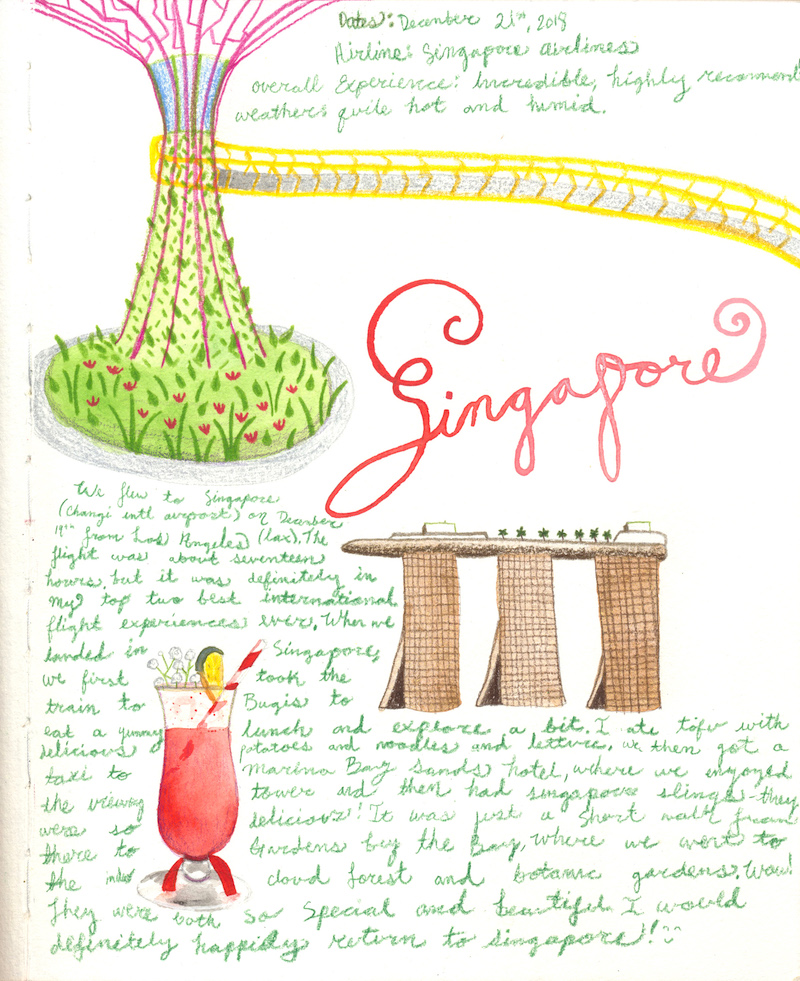 Dates: December 21st, 2018
Airline: Singapore airlines
overall Experience: Incredible, highly recommend
weather: quite hot and humid.
Singapore
We flew to Singapore
(Changi intl airport) on December
19th from Los Angeles (lax). The
flight was about seventeen
hours, but it was definitely in
my top two best international
flight experiences ever. When we
landed in Singapore,
we first took the
train to Bugis to
eat a yummy lunch and explore a bit. I ate tofu with
delicious potatoes and noodles and lettuce. We then got a
taxi to Marina Bay Sands hotel, where we enjoyed
the viewing tower and then had singapore slings-they
were so delicious! It was just a short walk from
there to Gardens by the Bay, where we went to
the indoor cloud forest and botanic gardens. Wow!
They were both so special and beautiful. I would
definitely happily return to singapore!